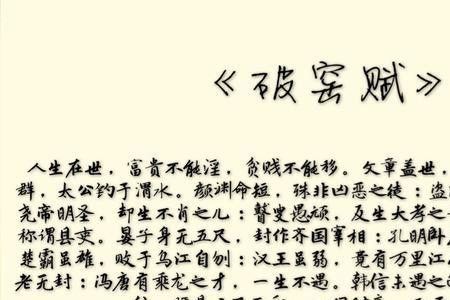 《破窑赋》
人生在世，富贵不能淫，贫贱不能移。文章盖世，
群，太公钓于渭水。颜渊命短，殊非凶恶之徒：盗
尧帝明圣，却生不肖之儿：瞽叟愚顽，反生大孝之
称谓县吏。晏子身无五尺，封作齐国宰相：孔明卧
楚霸虽雄，败于乌江自刎：汉王虽弱，竟有万里江
老无封：冯唐有乘龙之才，一生不遇。韩信未遇之